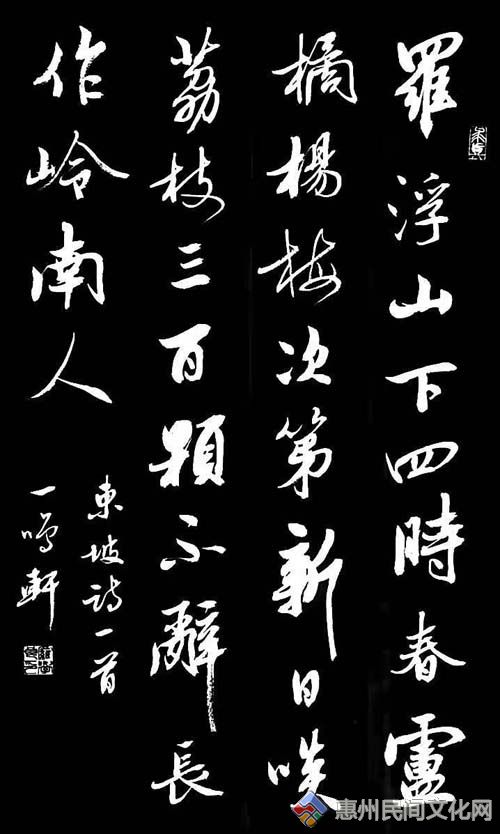 羅浮山下四時春盧
橘楊梅次第新日啖
荔枝三百顆不辭長
作岭南人
東坡诗一首
一鸣軒
惠州民间文化网